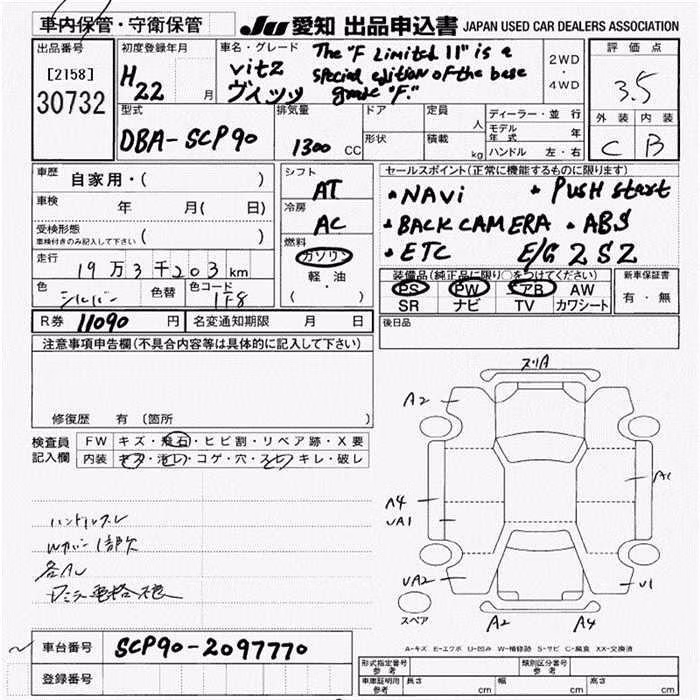 車内保管・守衛保管 JU 愛知 出品申込書 JAPAN USED CAR DEALERS ASSOCIATION
出品番号
[2158]
30732
初度登録年月
H22 月
車名・グレード
vitz
ヴィッツ
The "F Limited II" is a
special edition of the base
grade "F."
2WD
・
4WD
評価点
3.5
外装 内装
C B
型式
DBA-SCP90
排気量
1300 CC
ドア
形状
定員 人
積載 kg
ディーラー・並行
モデル年式 年
ハンドル 左・右
車歴 自家用・( )
車検 年 月( 日)
受検形態
車検付きのみ記入して下さい ( )
走行
19万3千203km
色 シルバー 色替 色コード 1F8
シフト
AT
冷房
AC
燃料
ガソリン
軽・油
( )
セールスポイント(正常に機能するものに限ります)
・NAVi ・PUSH start
・BACK CAMERA ・ABS
・ETC E/G 2SZ
装備品(純正品に限り○をつけてください)
PS PW アAB AW
SR ナビ TV カワシート
新車保証書
有・無
R券 11090 円 名変通知期限 月 日
後日品
注意事項申告欄(不具合内容等は具体的に記入して下さい)
修復歴 有 (箇所 )
検査員
記入欄
FW キズ・飛石・ヒビ割・リペア跡・X要
内装 キズ・汚レ・コゲ・穴・スレ・キレ・破レ
ハンドルスレ
Wカバー1部欠
各AL
A2
A1
A4
UA1
UA2
U1
スペア
A2 A4
A-キズ E-エクボ U-凹み W-補修跡 S-サビ C-腐食 XX-交換済
車台番号 SCP90-2097770
登録番号
形式指定番号
参考
類別区分番号
参考
車庫証明用
参考
長さ cm 幅 cm 高さ cm